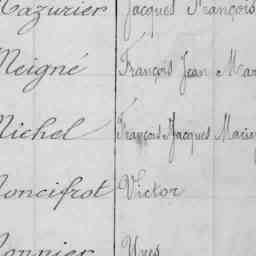 Mazurier Jacques François
Meigné François Jean Mar
Michel François Jacques Marie
Moncifrot Victor
Monnier Yves